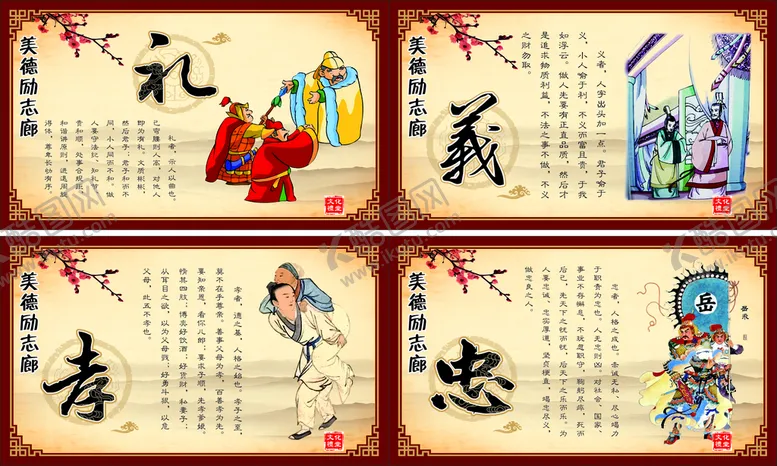 美德励志廊
礼
礼者，示人以曲也。
已弯腰则人高，对他人
即为有礼。文质彬彬，
然后君子；君子和而不
同，小人同而不和。做
人要守法纪，知礼节，
贵和顺，处事合规距，
和谐讲原则，进退周旋
得体，尊卑长幼有序。
文化
禮堂
美德励志廊
義
义者，人字出头加一点。君子喻于
义，小人喻于利，不义而富且贵，于我
如浮云。做人先要有正直品质，然后才
是追求物质利益，不法之事不做，不义
之财勿取。
文化
禮堂
美德励志廊
孝
孝者，德之基，人格之始也。孝子之至，
莫不在乎尊亲。善事父母为孝，百善孝为先。
要知亲恩，看你儿郎；要求子顺，先孝爹娘。
惰其四肢；博奕好饮酒；好货财，私妻子；
从耳目之欲，以为父母戮；好勇斗狠，以危
父母，此五不孝也。
文化
禮堂
美德励志廊
忠
忠者，人格之成也。赤诚无私、尽心竭力
于职责为忠也。人无忠则凶。对社会、国家、
事业不存懈怠，不玩忽职守，鞠躬尽瘁，死而
后已，先天下之忧而忧，后天下之乐而乐。为
人要忠诚、忠实厚道，坚贞梗直，竭忠尽义，
做忠良之人。
岳
岳飞
文化
禮堂